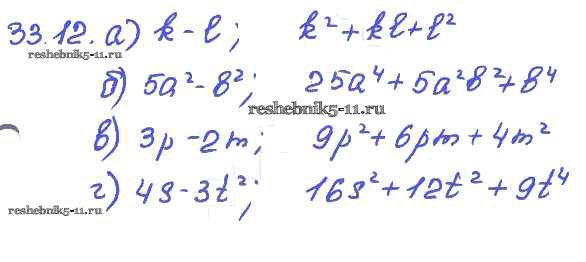 33.12. а) k - l; k² + kl + l²
reshebnik5-11.ru
б) 5a² - b²; 25a⁴ + 5a²b² + b⁴
reshebnik5-11.ru
в) 3p - 2m; 9p² + 6pm + 4m²
г) 4s - 3t²; 16s² + 12t² + 9t⁴
reshebnik5-11.ru